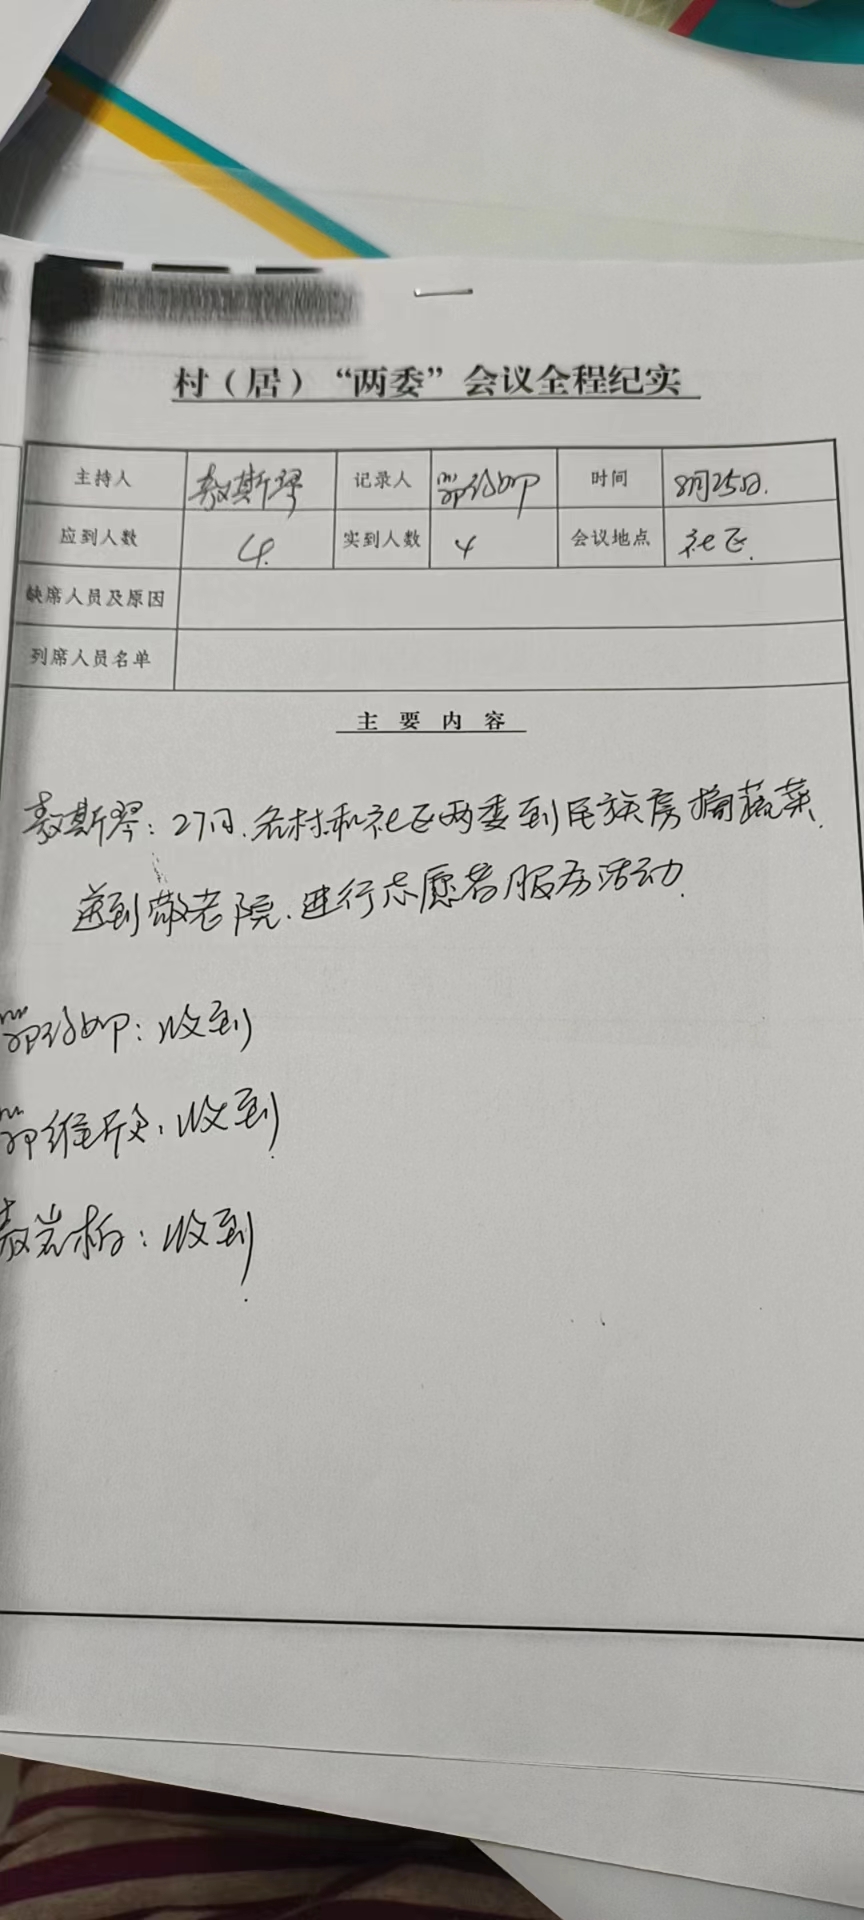 村（居）“两委”会议全程纪实
主持人 敖斯琴 记录人 时间 8月25日.
应到人数 4. 实到人数 4 会议地点 社区.
缺席人员及原因
列席人员名单
主 要 内 容
敖斯琴：27日.各村和社区两委到民族房摘蔬菜.
送到敬老院.进行志愿者服务活动.
：收到
：收到
敖岩柏：收到